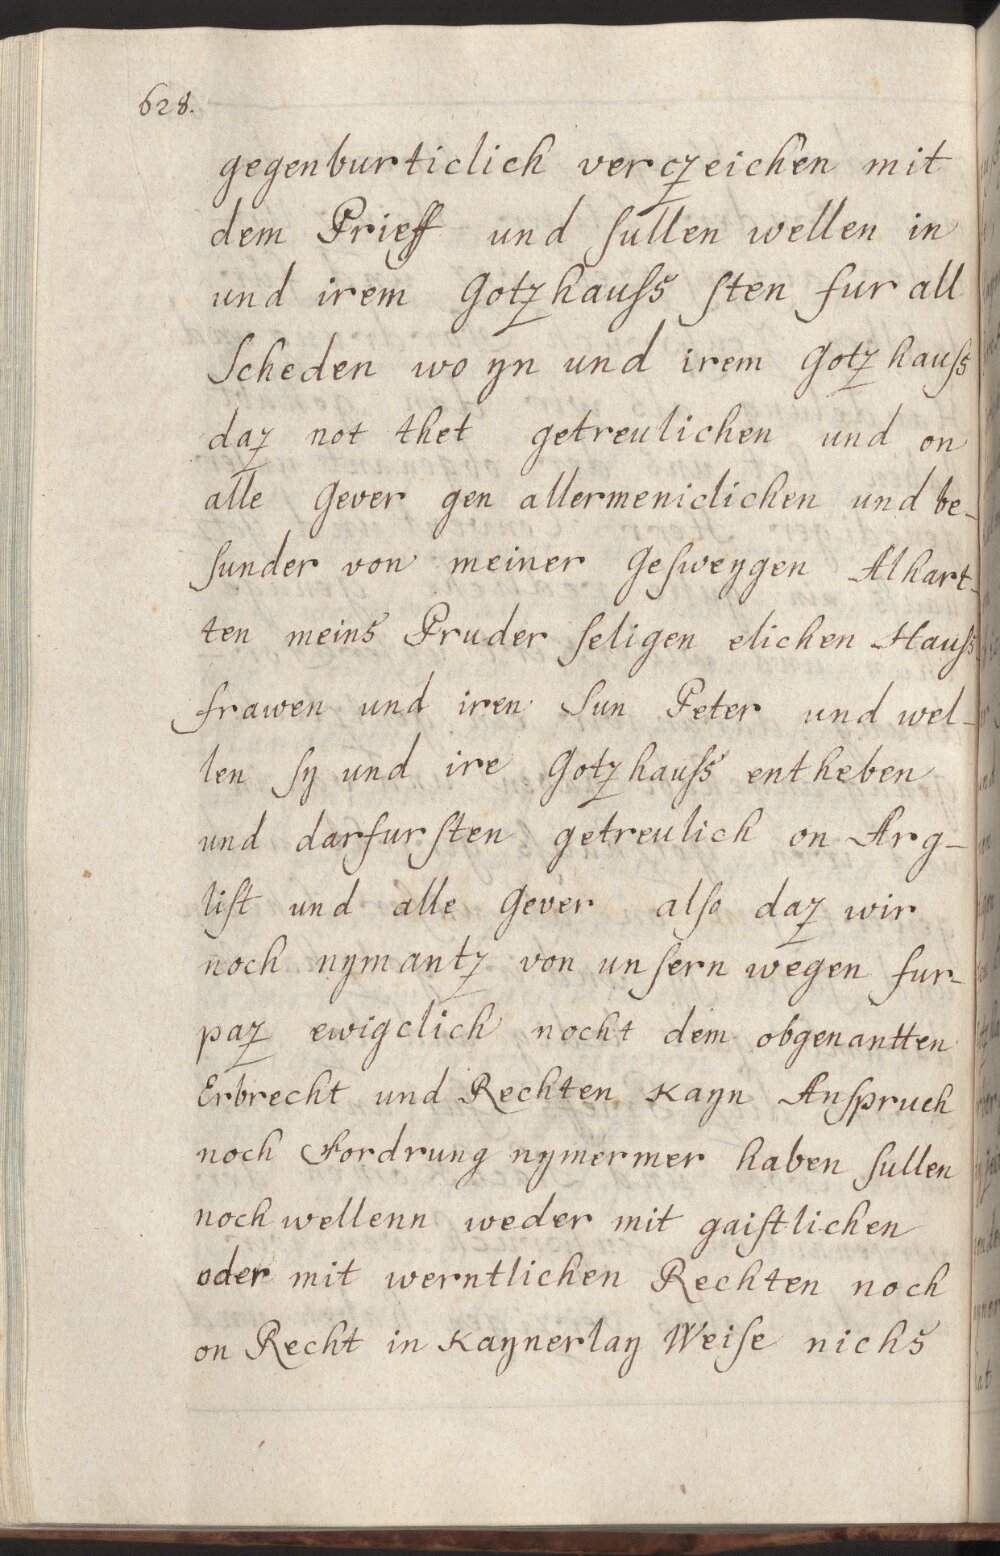 628.
gegenburticlich verczeichen mit
dem Prieff und ſullen wellen in
und irem Gotzhauſs ſten fur all
Scheden wo yn und irem Gotzhauſs
daz not thet getreulichen und on
alle Gever gen allermeniclichen und be-
ſunder von meiner Geſweygen Alhart-
ten meins Pruder ſeligen elichen Hauſs
frawen und iren Sun Peter und wel-
len ſy und ire Gotzhauſs entheben
und darfurſten getreulich on Arg-
liſt und alle Gever alſo daz wir
noch nymantz von unſern wegen fur-
paz ewigclich nocht dem obgenantten
Erbrecht und Rechten Kayn Anſpruch
noch Fordrung nymermer haben ſullen
noch wellenn weder mit gaiſtlichen
oder mit werntlichen Rechten noch
on Recht in Kaynerlay Weiſe nichs